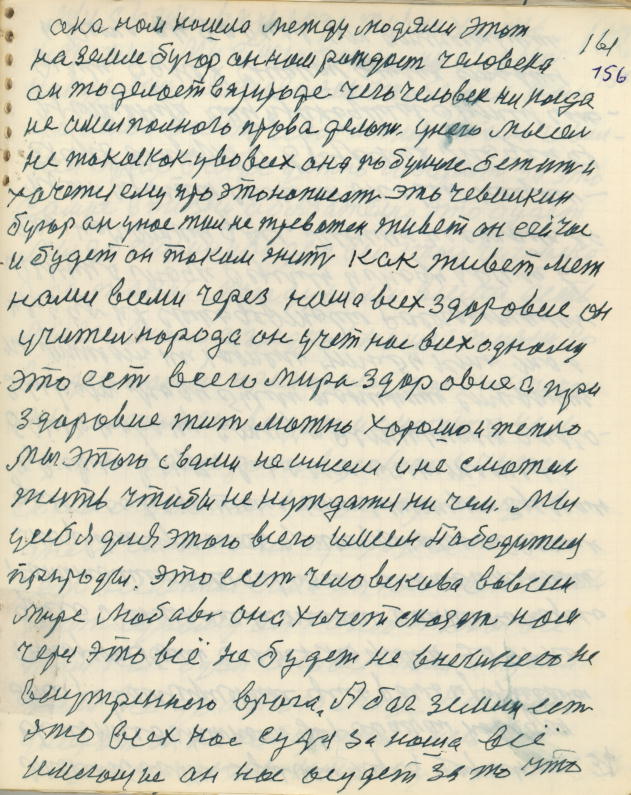 она нам нашла между людями этот
161
на земле бугор он нам рождает человека
156
он то делает в природе чего человек ни когда
не имел полного права делать. у него мысел
не такая как у во всех она по бумаге бежит и
хочется ему про это написать это чевилкин
бугор он у нас там не тревожен живет он сейчас
и будет он таким жить как живет меж
нами всеми через наша всех здоровие он
учител народа он учет нас всех одному
это ест всего мира здоровие а при
здоровие жит можно хорошо и тепло
мы этого с вами не имеем и не сможем
жить чтобы не нуждатся ни чем. мы
у себя для этого всего имеем Победителя
природы. это ест человекова во всем
мире любовь она хочет сказат нам
через это всё не будет не внешнего не
внутреннего врага. А бог земли ест
это всех нас судя за наша всё
имеющие он нас осудет за то что